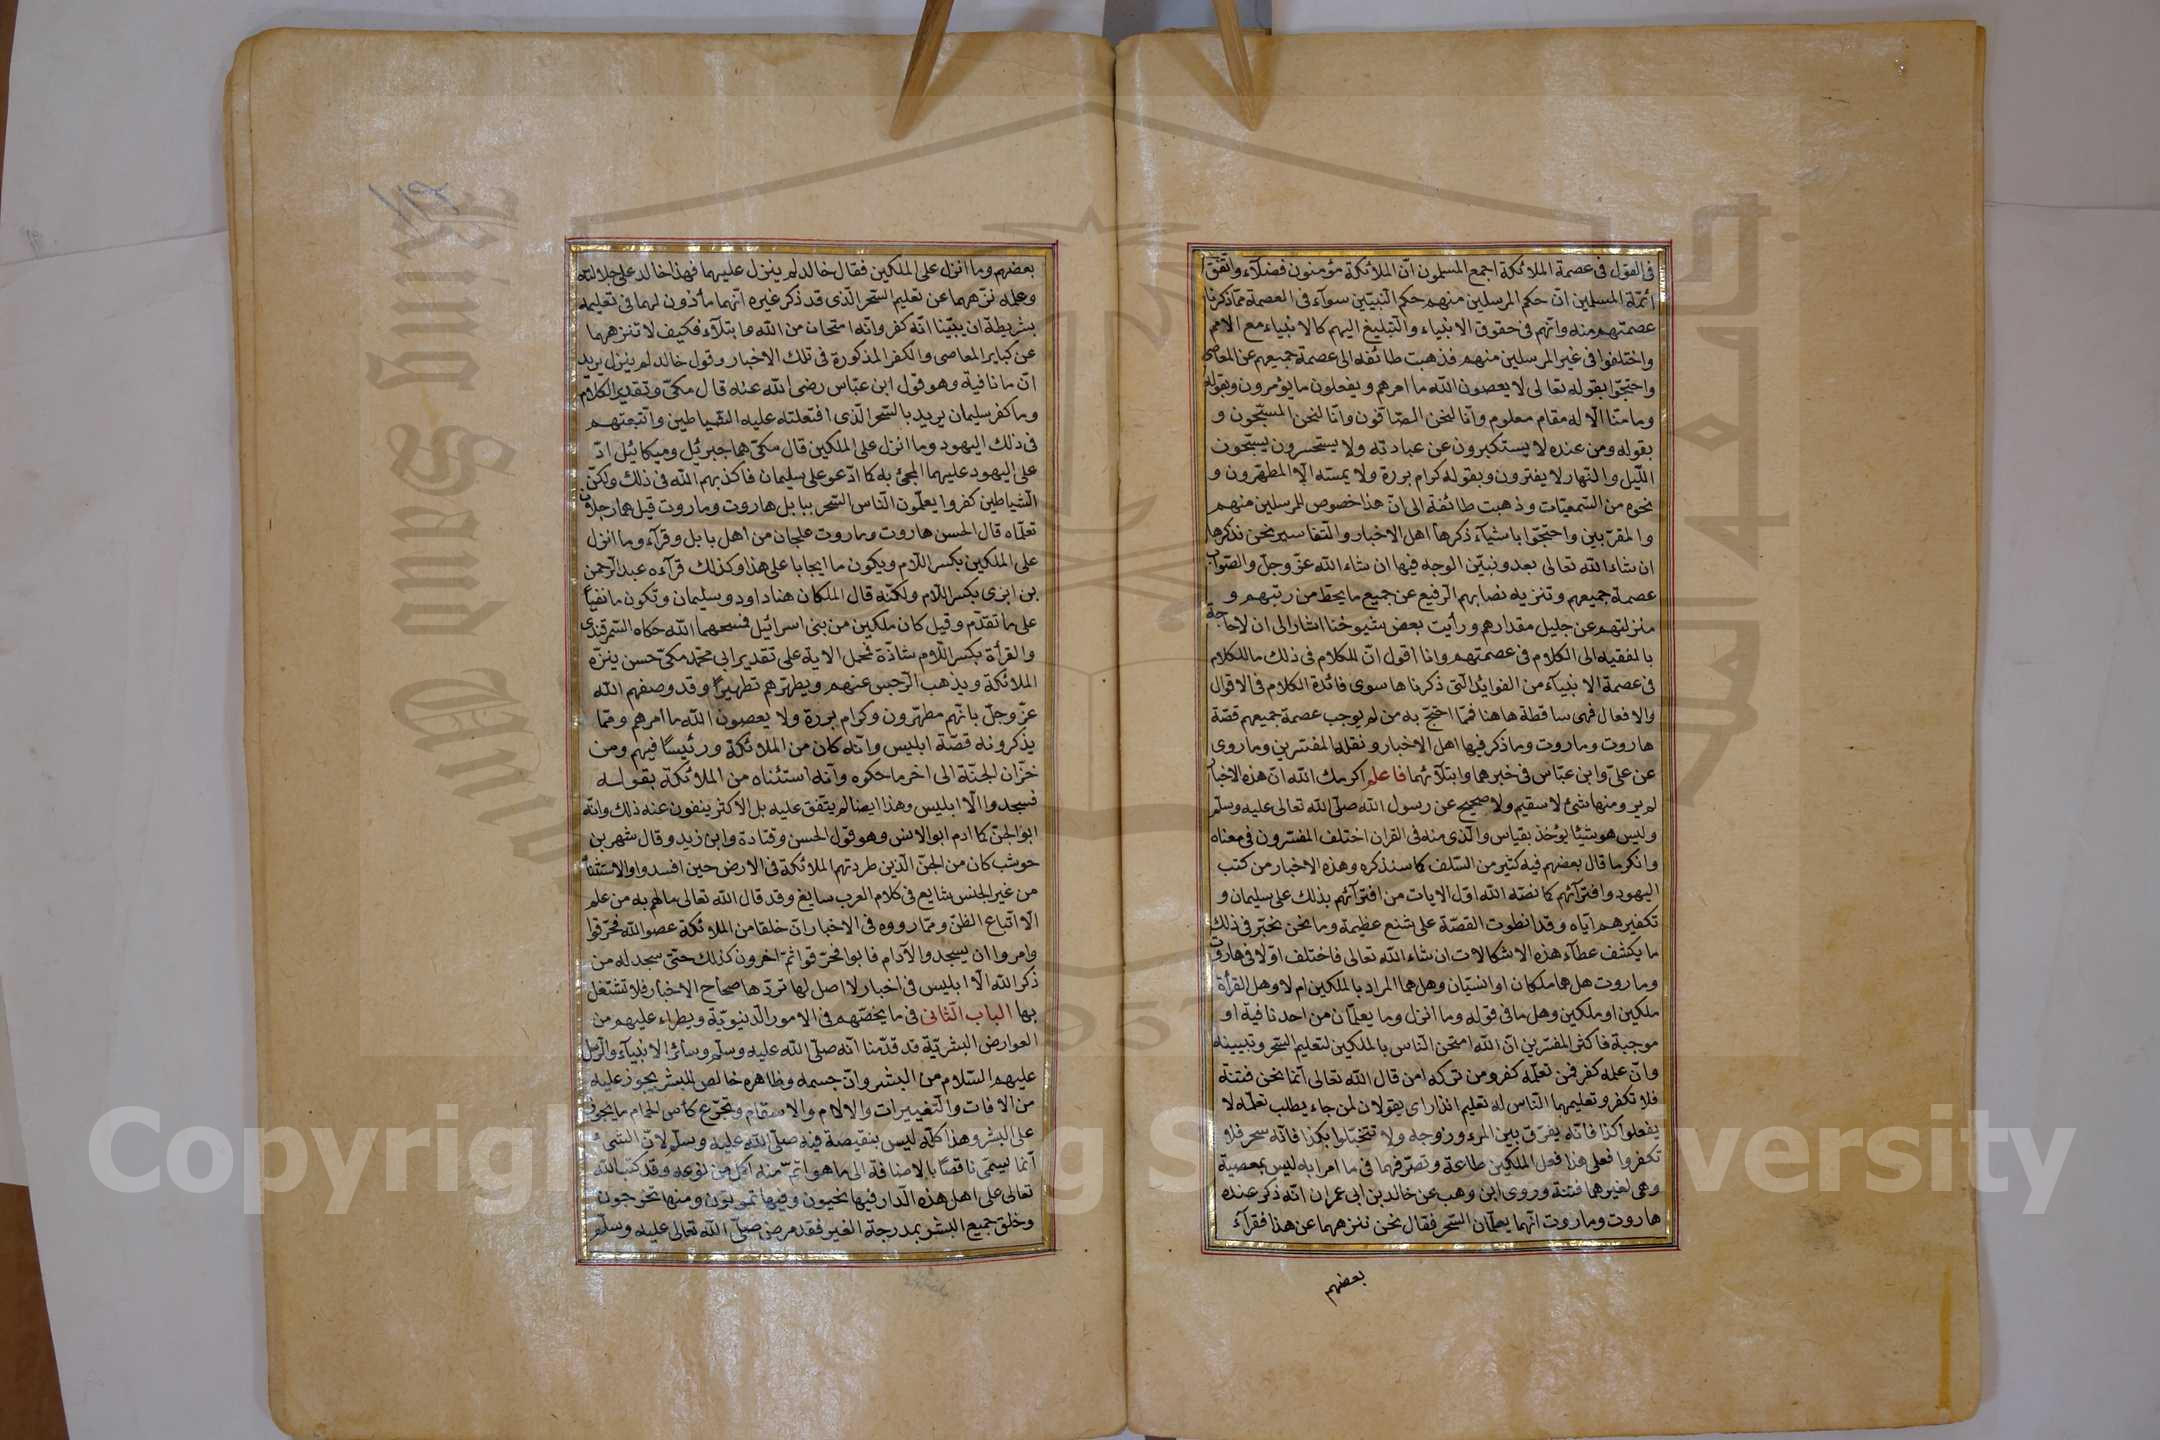 فى القول فى عصمة الملائكة اجمع المسلمون انّ الملائكة مؤمنون فضلآء واتّفق
ائمّة المسلمين انّ حكم المرسلين منهم حكم النّبيّين سوآء فى العصمة ممّا ذكرنا
عصمتهم منه وانّهم فى حقوق الانبياء والتّبليغ اليهم كالانبياء مع الامم
واختلفوا فى غير المرسلين منهم فذهبت طائفه الى عصمة جميعهم عن المعاصى
واحتجّوا بقوله تعالى لا يعصون اللّه ما امرهم ويفعلون ما يؤمرون وبقوله
وما منّا الّا له مقام معلوم وانّا لنحن الصّافّون وانّا لنحن المسبّحون و
بقوله ومن عنده لا يستكبرون عن عبادته ولا يستحسرون يسبّحون
اللّيل والنّهار لا يفترون وبقوله كرام بررة ولا يمسّه الّا المطهّرون و
نحوه من السّمعيّات وذهبت طائفة الى انّ هذا خصوص للمرسلين منهم
والمقرّبين واحتجّوا باشيآء ذكرها اهل الاخبار والتّفاسير نحن نذكرها
ان شاء اللّه تعالى بعد ونبيّن الوجه فيها ان شاء اللّه عزّ وجلّ والصّواب
عصمة جميعهم وتنزيه نصابهم الرّفيع عن جميع ما يحطّ من رتبهم و
منزلتهم عن جليل مقدارهم ورأيت بعض شيوخنا اشار الى ان لا حاجة
بالفقيه الى الكلام فى عصمتهم وانا اقول انّ للكلام فى ذلك ما للكلام
فى عصمة الانبيآء من الفوايد الّتى ذكرناها سوى فائدة الكلام فى الاقوال
والافعال فهى ساقطة هاهنا فممّا احتجّ به من لم يوجب عصمة جميعهم قصّة
هاروت وماروت وما ذكر فيها اهل الاخبار ونقله المفسّرين وما روى
عن علىّ وابن عبّاس فى خبرهما وابتلآئهما فاعلم اكرمك اللّه انّ هذه الاخبار
لم يرو منها شىء لا سقيم ولا صحيح عن رسول اللّه صلّى اللّه تعالى عليه وسلّم
وليس هو شيئا يؤخذ بقياس والّذى منه فى القران اختلف المفسّرون فى معناه
وانكر ما قال بعضهم فيه كثير من السّلف كما سنذكره وهذه الاخبار من كتب
اليهود وافترآئهم كما نصّه اللّه اوّل الايات من افترآئهم بذلك على سليمان و
تكفيرهم ايّاه وقد انطوت القصّة على شنع عظيمة وها نحن نخبّر فى ذلك
ما يكشف غطآء هذه الاشكالات ان شاء اللّه تعالى فاختلف اوّلا فى هاروت
وماروت هل هما ملكان او انسيّان وهل هما المراد بالملكين ام لا وهل القرأة
ملكين او ملكين وهل ما فى قوله وما انزل وما يعلّمان من احد نافية او
موجبة فاكثر المفسّرين انّ اللّه امتحن النّاس بالملكين لتعليم السّحر وتبيينه
وانّ عمله كفر فمن تعلّمه كفر ومن تركه امن قال اللّه تعالى انّما نحن فتنة
فلا تكفر وتعليمهما النّاس له تعليم انذار اى يقولان لمن جاء يطلب تعلّمه لا
يفعلوا كذا فانّه يفرّق بين المرء وزوجه ولا تتخيّلوا بكذا فانّه سحر فلا
تكفروا فعلى هذا فعل الملكين طاعة وتصرّفهما فى ما امرا به ليس بمعصية
وهى لغيرهما فتنة وروى ابن وهب عن خالد بن ابى عمران انّه ذكر عنده
هاروت وماروت انّهما يعلّمان السّحر فقال نحن ننزّههما عن هذا فقرأء
بعضهم
بعضهم وما انزل على الملكين فقال خالد لم ينزل عليهما فهذا خالد على جلالته
وعلمه نزّههما عن تعليم السّحر الّذى قد ذكر غيره انّهما مأذون لهما فى تعليمه
بشريطة ان يبيّنا انّه كفر وانّه امتحان من اللّه وابتلآء فكيف لا تنزههما
عن كباير المعاصى والكفر المذكورة فى تلك الاخبار وقول خالد لم ينزل يريد
انّ ما نافية وهو قول ابن عبّاس رضى اللّه عنه قال مكىّ وتقدير الكلام
وما كفر سليمان يريد بالسّحر الّذى افتعلته عليه الشّياطين واتّبعتهم
فى ذلك اليهود وما انزل على الملكين قال مكىّ هما جبرئيل وميكائيل ادّ
على اليهود عليهما المجئ به كما ادّعو على سليمان فاكذبهم اللّه فى ذلك ولكنّ
الشّياطين كفروا يعلّمون النّاس السّحر ببابل هاروت وماروت قيل هما رجلان
تعلّماه قال الحسن هاروت وماروت علجان من اهل بابل وقرآء وما انزل
على الملكين بكسر اللّام ويكون ما ايجابا على هذا وكذلك قرآءه عبد الرّحمن
بن ابزى بكسر اللّام ولكنّه قال الملكان هنا داود وسليمان وتكون ما نفياً
على ما تقدّم وقيل كان ملكين من بنى اسرائيل فمسخهما اللّه حكاه السّمرقندى
والقرأة بكسر اللّام شاذّة فمحمل الاية على تقدير ابى محمّد مكىّ حسن ينزّه
الملائكة ويذهب الرّجس عنهم ويطهّرهم تطهيرًا وقد وصفهم اللّه
عزّ وجلّ بانّهم مطهّرون وكرام بررة ولا يعصون اللّه ما امرهم وممّا
يذكرونه قصّة ابليس وانّه كان من الملائكة ورئيسًا فيهم ومن
خزّان الجنّة الى اخر ما حكوه وانّه استثناه من الملائكة بقوله
فسجدوا الّا ابليس وهذا ايضا لم يتّفق عليه بل الاكثر ينفون عنه ذلك وانّه
ابو الجنّ كما ادم ابو الانس وهو قول الحسن وقتادة وابن زيد وقال شهر بن
حوشب كان من الجنّ الّذين طردتهم الملائكة فى الارض حين افسدوا والاستثناء
من غير الجنس شايع فى كلام العرب سايغ وقد قال اللّه تعالى ما لهم به من علم
الّا اتّباع الظّنّ وممّا رووه فى الاخبار انّ خلقا من الملائكة عصوا اللّه فحرّقوا
وامروا ان يسجدوا لآدام فابوا فحرّقوا ثمّ اخرون كذلك حتّى سجد له من
ذكر اللّه الّا ابليس فى اخبار لا اصل لها تردّها صحاح الاخبار فلا تشتغل
بها الباب الثّانى فى ما يخصّهم فى الامور الدّنيويّة ويطراء عليهم من
العوارض البشريّة قد قدّمنا انّه صلّى اللّه عليه وسلّم وسائر الانبيآء والرّسل
عليهم السّلام من البشر وانّ جسمه وظاهره خالص للبشر يجوز عليه
من الافات والتّغييرات والالام والاسقام وتجرّع كأس الحمام ما يجوز
على البشر وهذا كلّه ليس بنقيصة فيه صلّى اللّه عليه وسلّم لانّ الشىء
انّما يسمّى ناقصًا بالاضافة الى ما هو اتمّ منه اكمل من نوعه وقد كتب اللّه
تعالى على اهل هذه الدّار فيها تحيون وفيها تموتون ومنها تخرجون
وخلق جميع البشر بمدرجة الغير فقد مرض صلّى اللّه تعالى عليه وسلّم
Copyright © King Saud University
1957